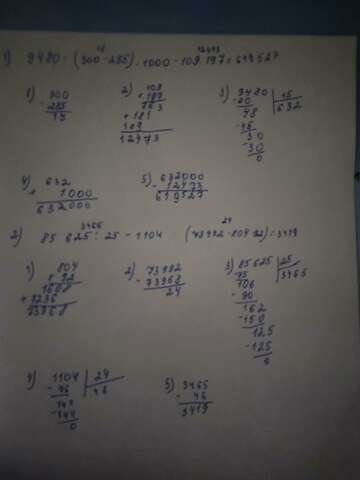 15 12473
1) 9480 : (300 - 285) · 1000 - 109 · 197 = 619527
1) 300 2) 109 3) 9480 | 15
- 285 × 197 - 90 632
15 763 48
+ 981 - 45
109 30
12473 - 30
0
4) 632 5) 632000
× 1000 - 12473
632000 619527
3465 24
2) 85 625 : 25 - 1104 (73992 - 804 · 92) = 3419
1) 804 2) 73992 3) 85625 | 25
× 92 - 73968 - 75 3465
1608 24 106
+ 7236 - 90
73968 162
- 150
125
- 125
0
4) 1104 | 24 5) 3465
- 96 46 - 46
144 3419
- 144
0